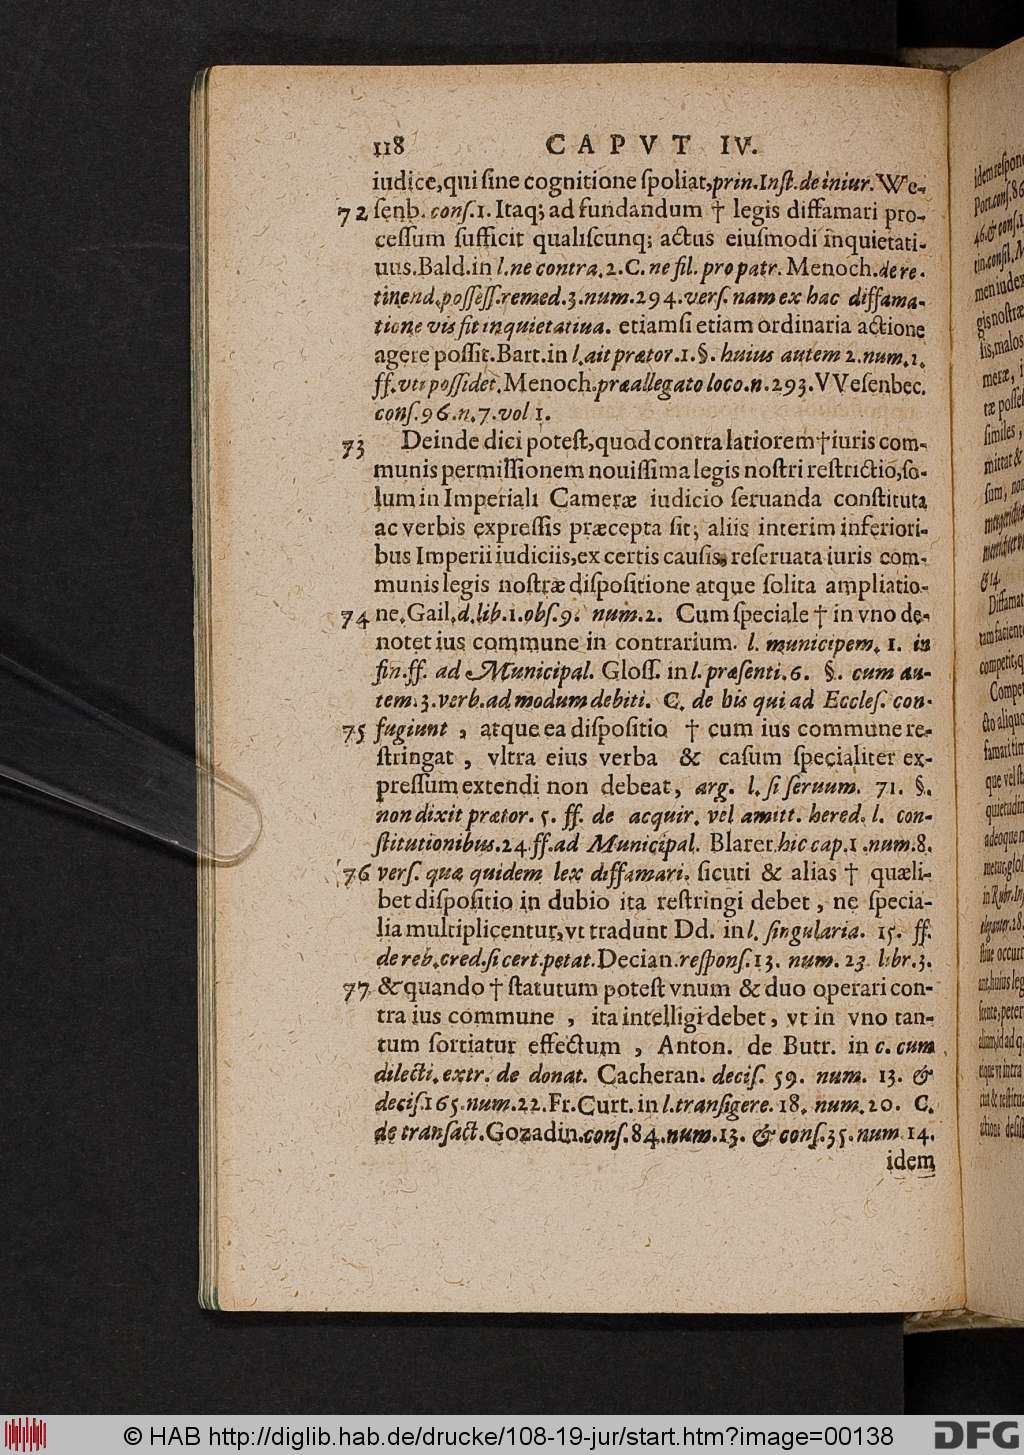 118 CAPVT IV.
iudice,qui ſine cognitione ſpoliat,prin.Inſt.de iniur.We-
72 ſenb. conſ.1. Itaq; ad fundandum † legis diffamari pro-
ceſſum ſufficit qualiſcunq; actus eiuſmodi inquietati-
uus.Bald.in l.ne contra.2.C. ne fil. pro patr. Menoch.de re.
tinend.poſſeſſ.remed.3.num.294.verſ. nam ex hac diffama-
tione vis fit inquietatiua. etiamſi etiam ordinaria actione
agere poſſit.Bart.in l.ait prætor.1.§. huius autem 2.num.1.
ff.vti poſſidet.Menoch.præallegato loco.n.293.VVeſenbec.
conſ.96.n.7.vol 1.
73 Deinde dici poteſt,quod contra latiorem†iuris com-
munis permiſſionem nouiſſima legis noſtri reſtrictio,ſo-
lum in Imperiali Cameræ iudicio ſeruanda conſtituta
ac verbis expreſſis præcepta ſit; aliis interim inferiori-
bus Imperii iudiciis,ex certis cauſis, reſeruata iuris com-
munis legis noſtræ diſpoſitione atque ſolita ampliatio-
74 ne.Gail.d.lib.1.obſ.9. num.2. Cum ſpeciale † in vno de-
notet ius commune in contrarium. l. municipem. 1. in
fin.ff. ad Municipal. Gloſſ. in l.præſenti.6. §. cum au-
tem.3.verb.admodum debiti. C. de his qui ad Eccleſ. con-
75 fugiunt , atque ea diſpoſitio † cum ius commune re-
ſtringat , vltra eius verba & caſum ſpecialiter ex-
preſſum extendi non debeat, arg. l. ſi ſeruum. 71. §.
non dixit prætor. 5. ff. de acquir. vel amitt. hered. l. con-
ſtitutionibus.24.ff.ad Municipal. Blarer.hic cap.1.num.8.
76 verſ. quæ quidem lex diffamari. ſicuti & alias † quæli-
bet diſpoſitio in dubio ita reſtringi debet , ne ſpecia-
lia multiplicentur,vt tradunt Dd. in l. ſingularia. 15. ff.
de reb.cred.ſi cert.petat.Decian.reſponſ.13. num. 23 libr.3.
77 & quando † ſtatutum poteſt vnum & duo operari con-
tra ius commune , ita intelligi debet, vt in vno tan-
tum ſortiatur effectum , Anton. de Butr. in c. cum
dilecti.extr. de donat. Cacheran. deciſ. 59. num. 13. &
deciſ.165.num.22.Fr.Curt. in l.tranſigere. 18. num.20. C.
de tranſact.Gozadin.conſ.84.num.13. & conſ.35.num 14.
idem
© HAB http://diglib.hab.de/drucke/108-19-jur/start.htm?image=00138
DFG